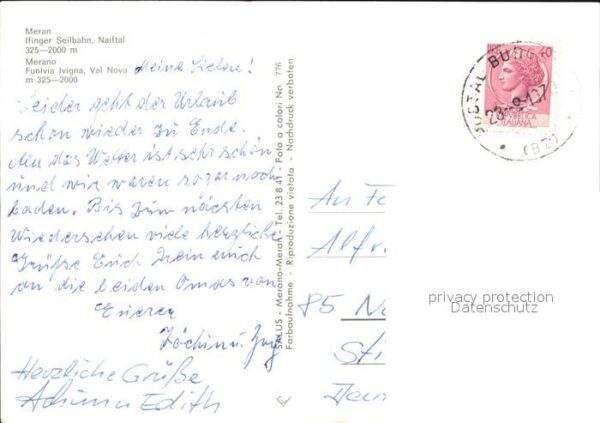 Meran
Ifinger Seilbahn, Naiftal
325—2000 m
Merano
Funivia Ivigna, Val Nova
m 325—2000
Meine Lieben!
Leider geht der Urlaub
schon wieder zu Ende.
das Wetter ist sehr schön
und wir waren sogar noch
baden. Bis zum nächsten
Wiedersehen viele herzliche
Grüße Euch Drein auch
an die beiden Omas von
Eueren
Herzliche Grüße
Edith
SALUS - Merano-Meran - Tel. 23 8 41 - Foto a colori No 776
Farbaufnahme - Riproduzione vietata - Nachdruck verboten
40
ITALIANA
(BZ)
An Fa
Alfr
85 N
Sti
privacy protection
Datenschutz